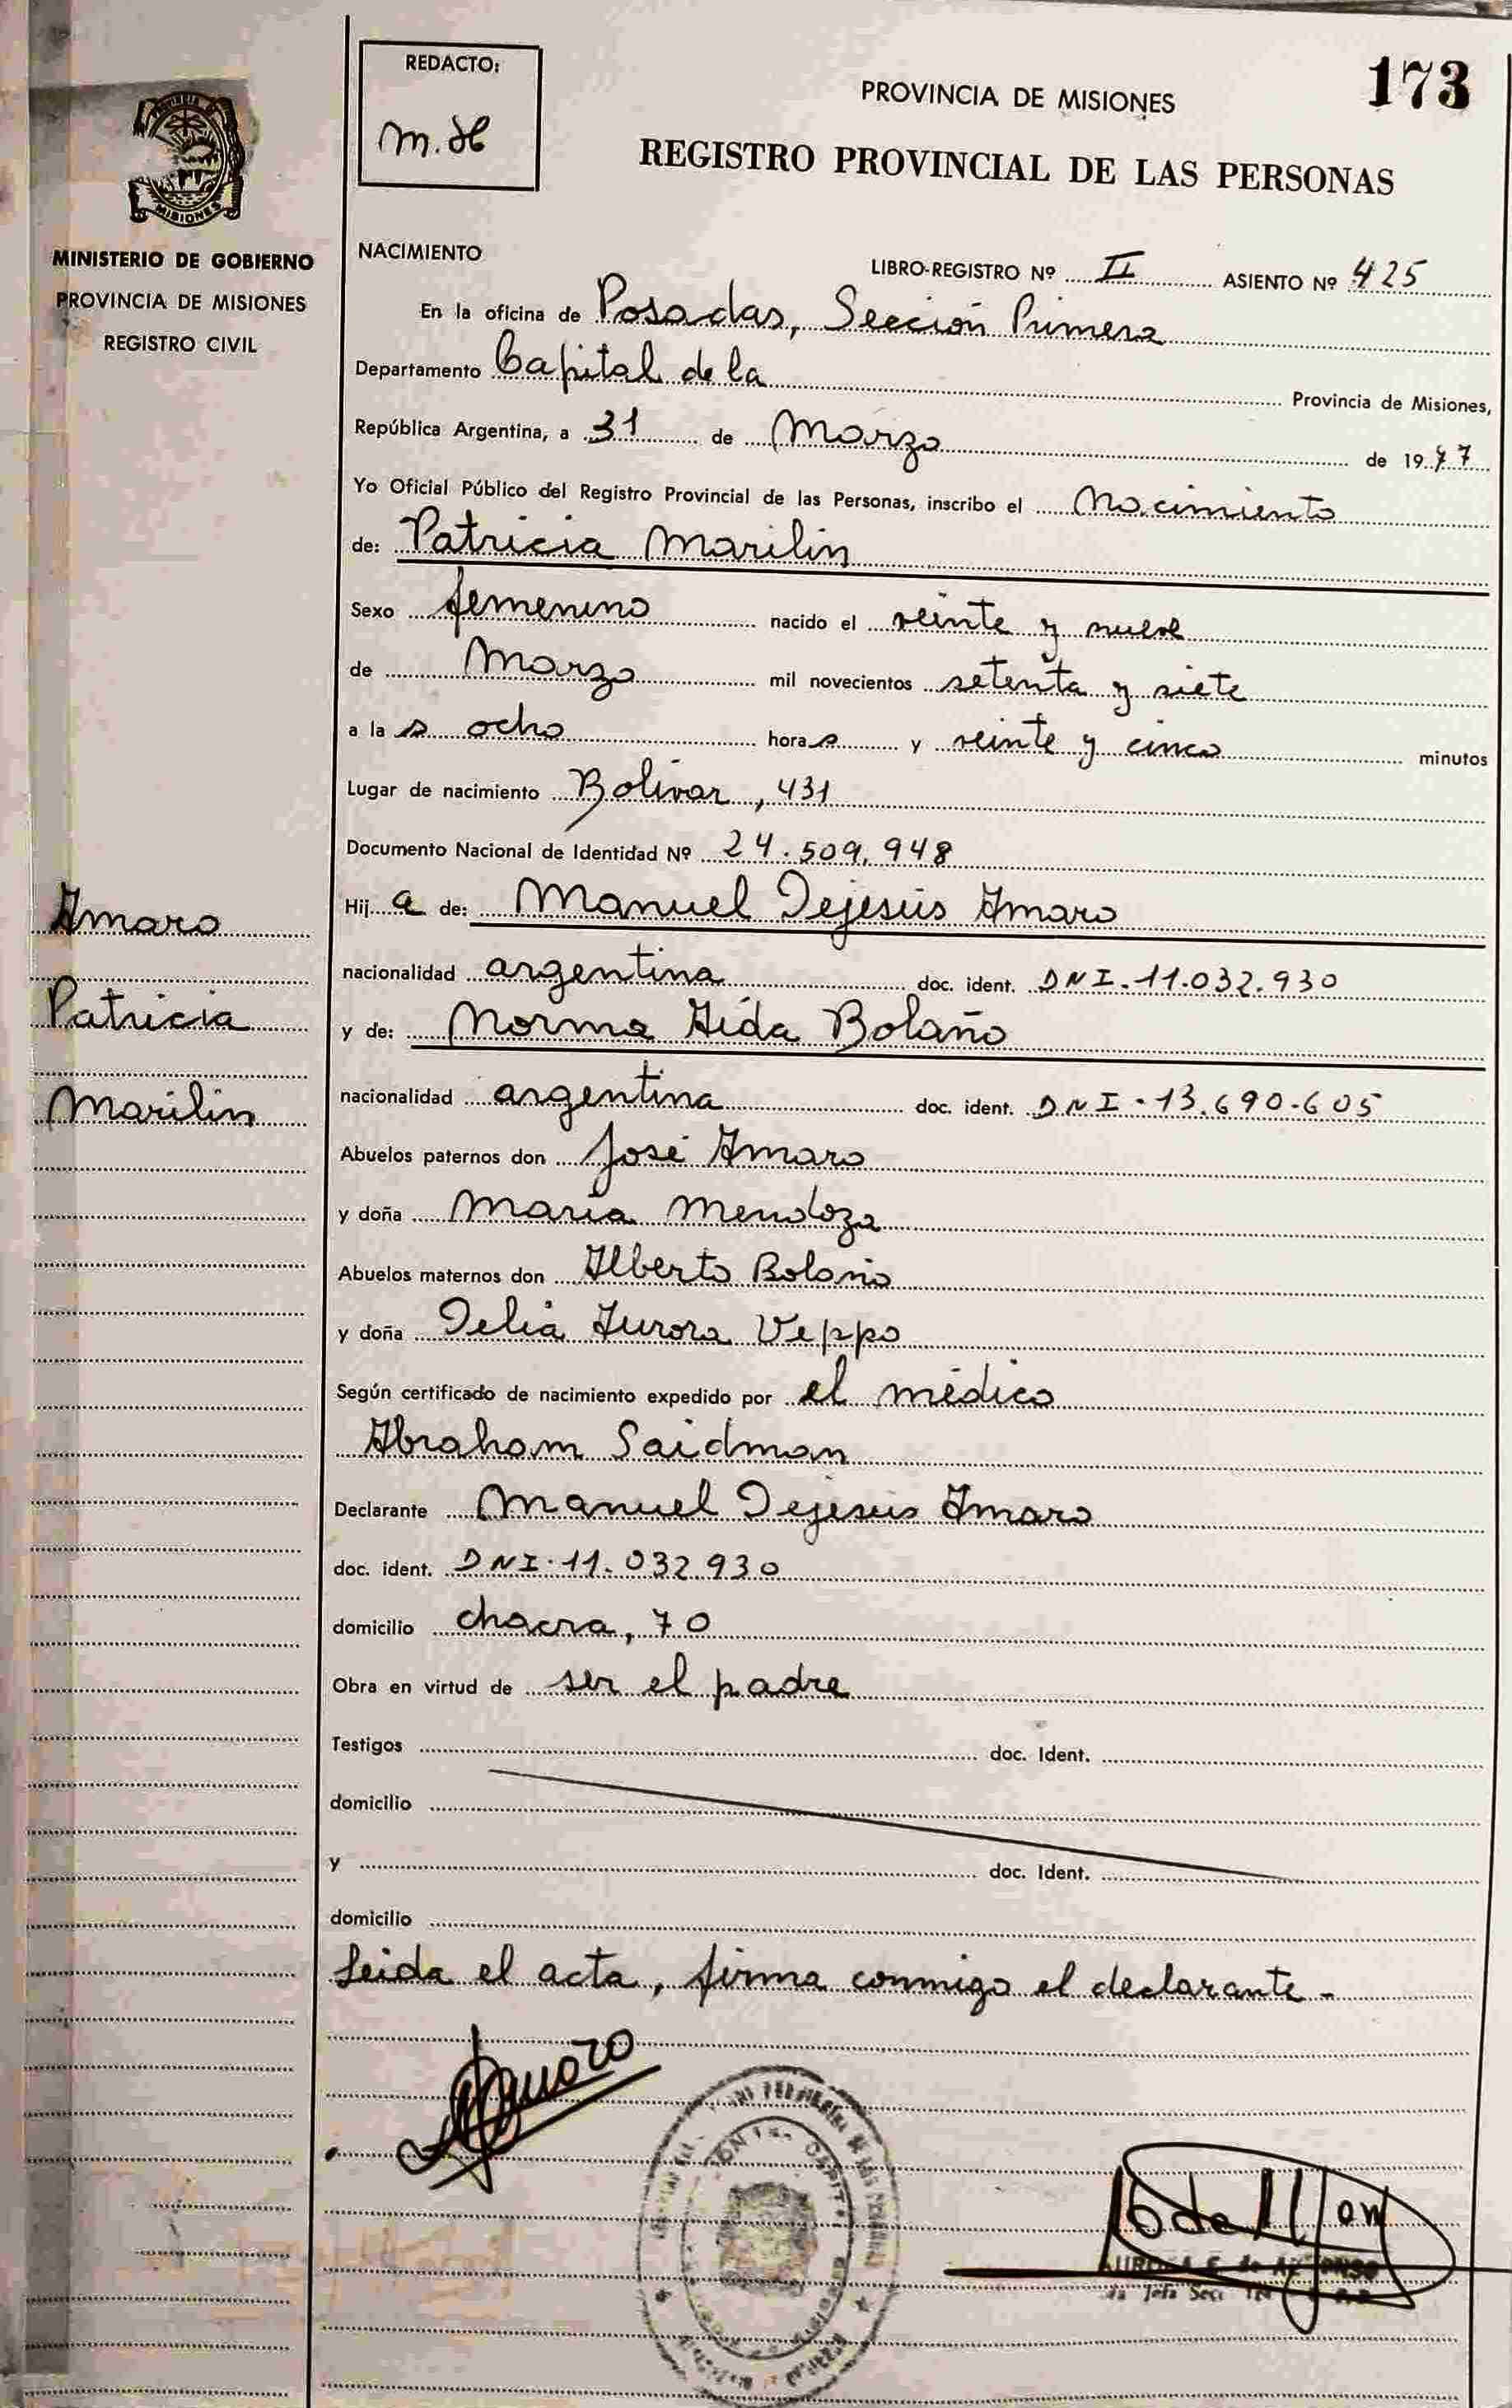 REDACTO:
m.H
173
PROVINCIA DE MISIONES
REGISTRO PROVINCIAL DE LAS PERSONAS
MISIONES
MINISTERIO DE GOBIERNO
PROVINCIA DE MISIONES
REGISTRO CIVIL
NACIMIENTO
LIBRO-REGISTRO Nº II ASIENTO Nº 425
En la oficina de Posadas, Sección Primera
Departamento Capital de la Provincia de Misiones,
República Argentina, a 31 de Marzo de 1977
Yo Oficial Público del Registro Provincial de las Personas, inscribo el Nacimiento
de: Patricia Marilin
Sexo femenino nacido el veinte y nueve
de Marzo mil novecientos setenta y siete
a las ocho horas y veinte y cinco minutos
Lugar de nacimiento Bolívar, 431
Documento Nacional de Identidad Nº 24.509.948
Hija de: Manuel Dejesús Amaro
nacionalidad argentina doc. ident. DNI-11.032.930
y de: Norma Aída Bolaño
nacionalidad argentina doc. ident. DNI-13.690.605
Abuelos paternos don José Amaro
y doña María Mendoza
Abuelos maternos don Alberto Bolaño
y doña Delia Aurora Veppo
Según certificado de nacimiento expedido por el médico
Abraham Saidman
Declarante Manuel Dejesús Amaro
doc. ident. DNI-11.032.930
domicilio chacra, 70
Obra en virtud de ser el padre
Testigos doc. Ident.
domicilio
y doc. Ident.
domicilio
Leida el acta, firma conmigo el declarante.-
Amaro
Patricia
Marilin
Amaro